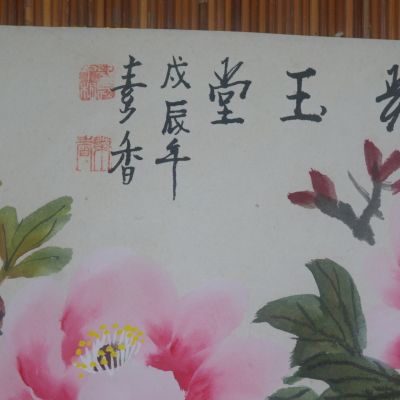 玉堂
戊辰年
素香